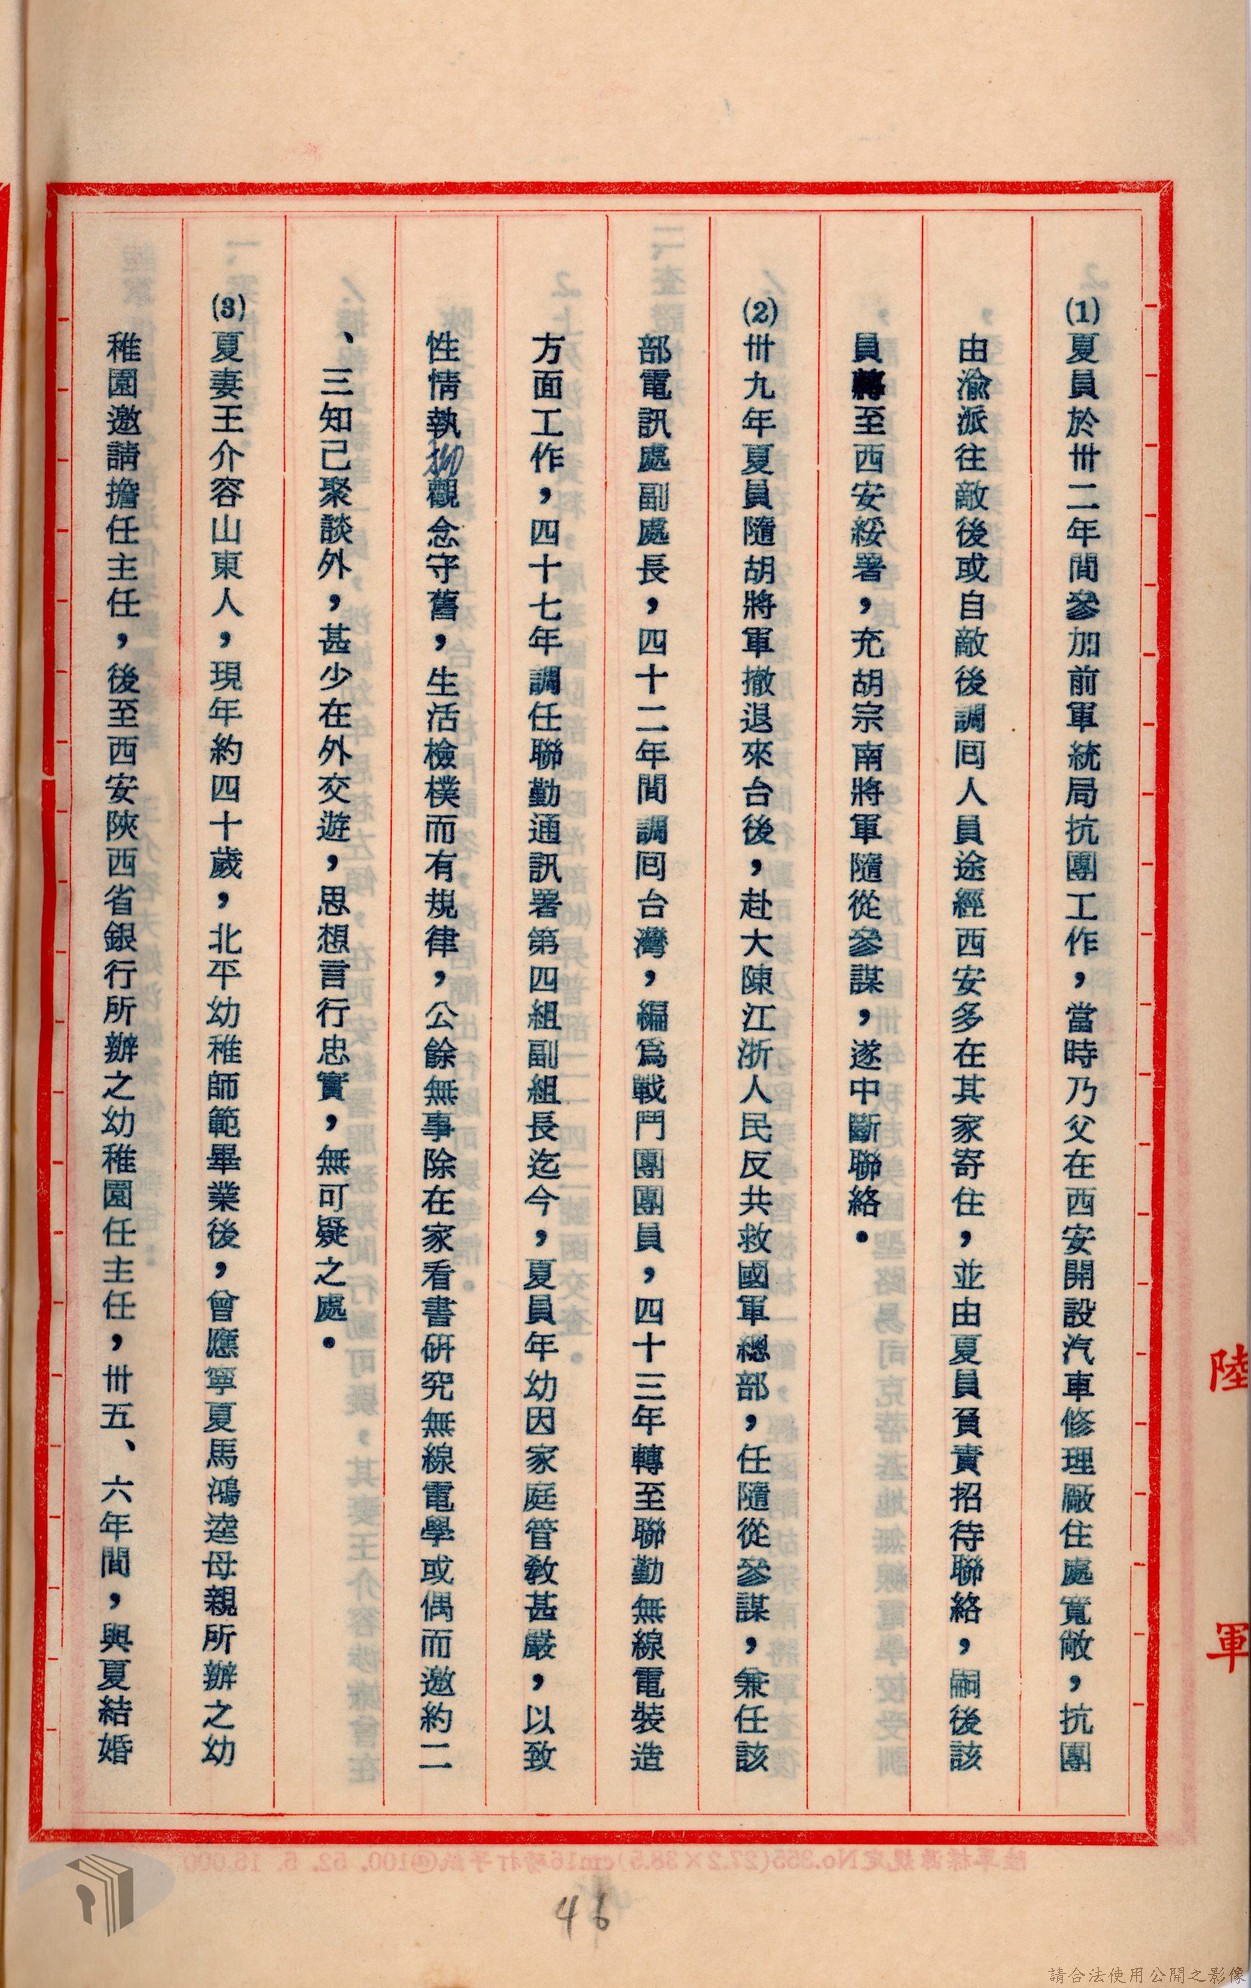 (1)夏員於卅二年間參加前軍統局抗團工作，當時乃父在西安開設汽車修理廠住處寬敞，抗團
由渝派往敵後或自敵後調回人員途經西安多在其家寄住，並由夏員負責招待聯絡，嗣後該
員轉至西安綏署，充胡宗南將軍隨從參謀，遂中斷聯絡。
(2)卅九年夏員隨胡將軍撤退來台後，赴大陳江浙人民反共救國軍總部，任隨從參謀，兼任該
部電訊處副處長，四十二年間調回台灣，編為戰鬥團團員，四十三年轉至聯勤無線電裝造
方面工作，四十七年調任聯勤通訊署第四組副組長迄今，夏員年幼因家庭管教甚嚴，以致
性情執拗觀念守舊，生活檢樸而有規律，公餘無事除在家看書研究無線電學或偶而邀約二
、三知己聚談外，甚少在外交遊，思想言行忠實，無可疑之處。
(3)夏妻王介容山東人，現年約四十歲，北平幼稚師範畢業後，曾應寧夏馬鴻逵母親所辦之幼
稚園邀請擔任主任，後至西安陝西省銀行所辦之幼稚園任主任，卅五、六年間，與夏結婚
陸軍
46
請合法使用公開之影像